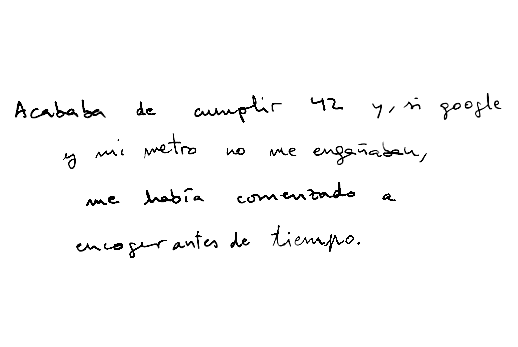 Acababa de cumplir 42 y, si google
y mi metro no me engañaban,
me había comenzado a
encoger antes de tiempo.